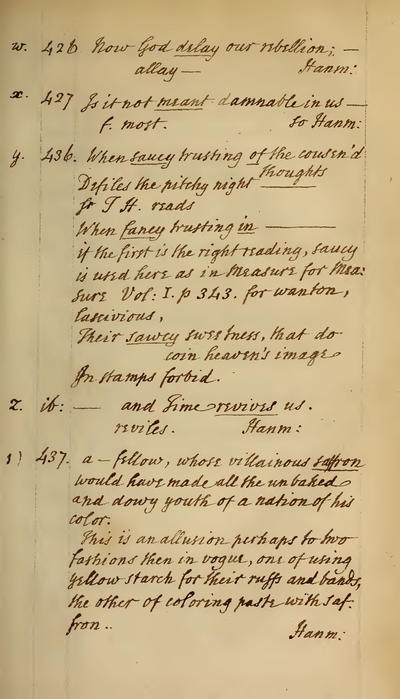 w. 426 Now God delay our rebellion; —
allay — Hanm:
x. 427 Is it not meant damnable in us —
f. most. so Hanm:
y. 436. When saucy trusting of the cousen'd
thoughts
Defiles the pitchy night ———
Sr T H. reads
When fancy trusting in ———
if the first is the right reading, saucy
is used here as in Measure for Mea:
sure Vol: I. p 343. for wanton,
lascivious,
Their sawcy sweetness, that do
coin heaven's image
In stamps forbid.
z. ib: — and Time revives us.
reviles. Hanm:
1) 437. a — fellow, whose villainous saffron
would have made all the unbaked
and dowy youth of a nation of his
color.
This is an allusion perhaps to two
fashions then in vogue, one of using
yellow starch for their ruffs and bands,
the other of coloring paste with saf:
fron..
Hanm: